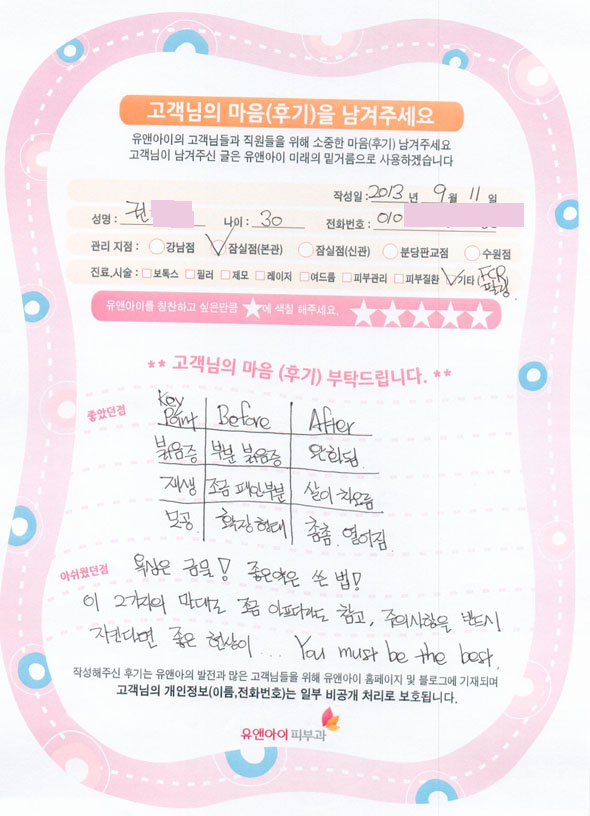 고객님의 마음(후기)을 남겨주세요
유앤아이의 고객님들과 직원들을 위해 소중한 마음(후기) 남겨주세요
고객님이 남겨주신 글은 유앤아이 미래의 밑거름으로 사용하겠습니다
작성일 : 2013 년 9 월 11 일
성명 : 권 나이 : 30 전화번호 : 010
관리 지점 : 강남점 잠실점(본관) 잠실점(신관) 분당판교점 수원점
진료,시술 : 보톡스 필러 제모 레이저 여드름 피부관리 피부질환 기타 (FCR
필링)
유앤아이를 칭찬하고 싶은만큼 ★에 색칠 해주세요. ★★★★★
** 고객님의 마음 (후기) 부탁드립니다. **
좋았던점
Key Point Before After
붉음증 부분 붉음증 완화됨
재생 조금 패인부분 살이 차오름
모공 확장형태 촘촘 옅어짐
아쉬웠던점 욕심은 금물! 좋은약은 쓴 법!
이 2가지의 말대로 조금 아프더라도 참고, 주의사항을 반드시
지킨다면 좋은 현상이 ... You must be the best.
작성해주신 후기는 유앤아의 발전과 많은 고객님들을 위해 유앤아이 홈페이지 및 블로그에 기재되며
고객님의 개인정보(이름,전화번호)는 일부 비공개 처리로 보호됩니다.
유앤아이 피부과